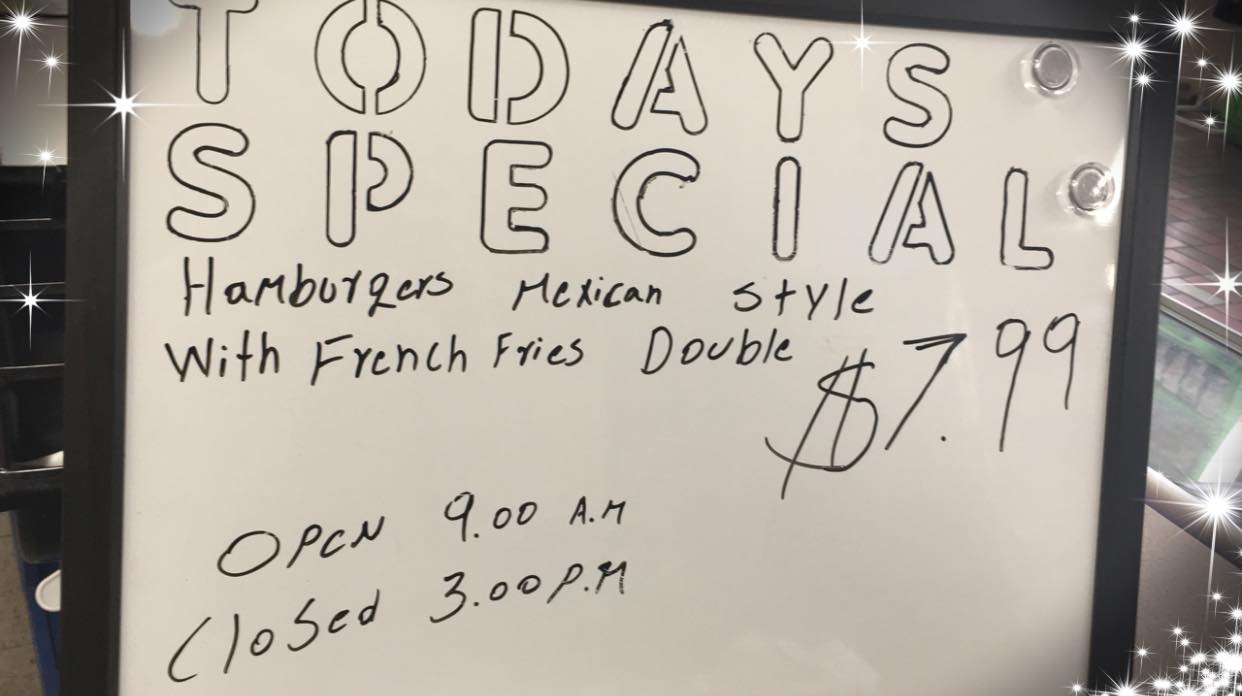 TODAYS
SPECIAL
Hamburgers Mexican style
With French Fries Double
$7.99
OPEN 9.00 A.M
Closed 3.00 P.M